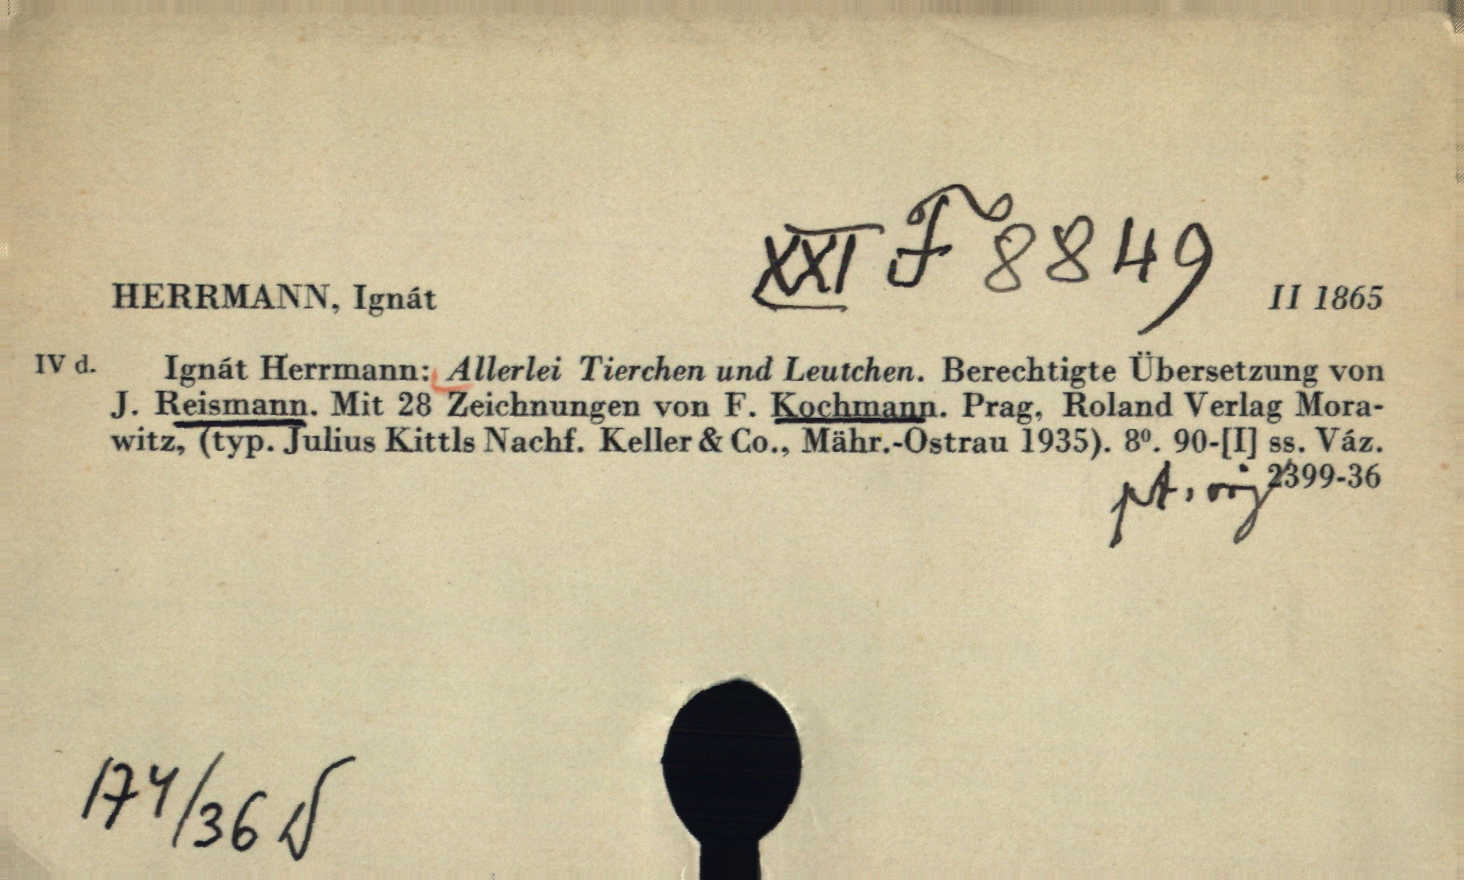 XXI F 8849
HERRMANN, Ignát II 1865
IV d. Ignát Herrmann: Allerlei Tierchen und Leutchen. Berechtigte Übersetzung von
J. Reismann. Mit 28 Zeichnungen von F. Kochmann. Prag, Roland Verlag Mora-
witz, (typ. Julius Kittls Nachf. Keller & Co., Mähr.-Ostrau 1935). 8⁰. 90-[I] ss. Váz.
2399-36
174/36